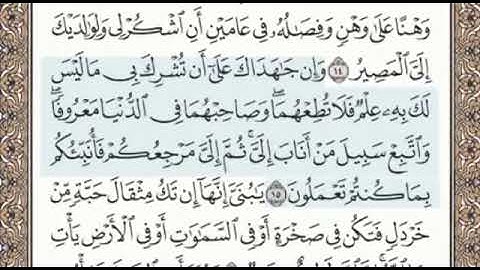 وَهْنًا عَلَىٰ وَهْنٍ وَفِصَٰلُهُۥ فِى عَامَيْنِ أَنِ ٱشْكُرْ لِى وَلِوَٰلِدَيْكَ
إِلَىَّ ٱلْمَصِيرُ ١٤ وَإِن جَٰهَدَاكَ عَلَىٰٓ أَن تُشْرِكَ بِى مَا لَيْسَ
لَكَ بِهِۦ عِلْمٌ فَلَا تُطِعْهُمَا ۖ وَصَاحِبْهُمَا فِى ٱلدُّنْيَا مَعْرُوفًا ۖ
وَٱتَّبِعْ سَبِيلَ مَنْ أَنَابَ إِلَىَّ ۚ ثُمَّ إِلَىَّ مَرْجِعُكُمْ فَأُنَبِّئُكُم
بِمَا كُنتُمْ تَعْمَلُونَ ١٥ يَٰبُنَىَّ إِنَّهَآ إِن تَكُ مِثْقَالَ حَبَّةٍ مِّنْ
خَرْدَلٍ فَتَكُن فِى صَخْرَةٍ أَوْ فِى ٱلسَّمَٰوَٰتِ أَوْ فِى ٱلْأَرْضِ يَأْتِ